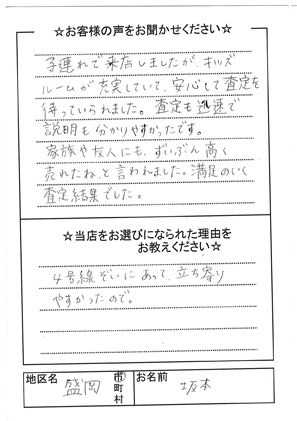 ☆お客様の声をお聞かせください☆
子連れで来店しましたが、キッズ
ルームが充実していて、安心して査定を
待っていられました。査定も迅速で
説明も分かりやすかったです。
家族や友人にも、ずいぶん高く
売れたね、と言われました。満足のいく
査定結果でした。
☆当店をお選びになられた理由を
お教えください☆
4号線ぞいにあって、立ち寄り
やすかったので。
地区名 盛岡 市町村 お名前 坂本